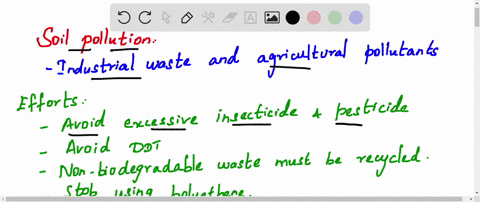 Soil pollution:
- Industrial waste and agricultural pollutants
Efforts:
- Avoid excessive insecticide & pesticide
- Avoid DDT
- Non-biodegradable waste must be recycled.
- Stop using polyethene.